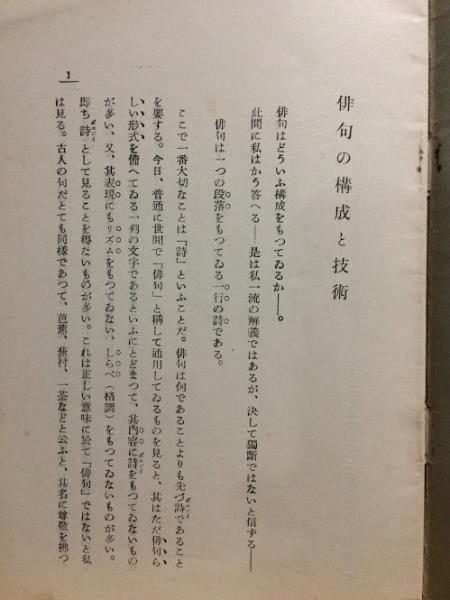 俳句の構成と技術
俳句はどういふ構成をもつてゐるか——。
此問に私はかう答へる——是は私一流の解義ではあるが、決して獨斷ではないと信ずる——
俳句は一つの段落をもつてゐる一行の詩である。
ここで一番大切なことは「詩」といふことだ。俳句は何であることよりも先づ詩であること
を要する。今日、普通に世間で「俳句」と稱して通用してゐるものを見ると、其はただ俳句ら
しい形式を備へてゐる一列の文字であるといふにとどまつて、其內容に詩をもつてゐないもの
が多い、又、其表現にもリズムをもつてゐない、しらべ（格調）をもつてゐないものが多い。
卽ち「詩」として見ることを得たいものが多い。これは正しい意味に於て「俳句」ではないと私
は見る。古人の句だとても同樣であつて、芭蕉、蕪村、一茶などと云ふと、其名に尊敬を拂つ
1